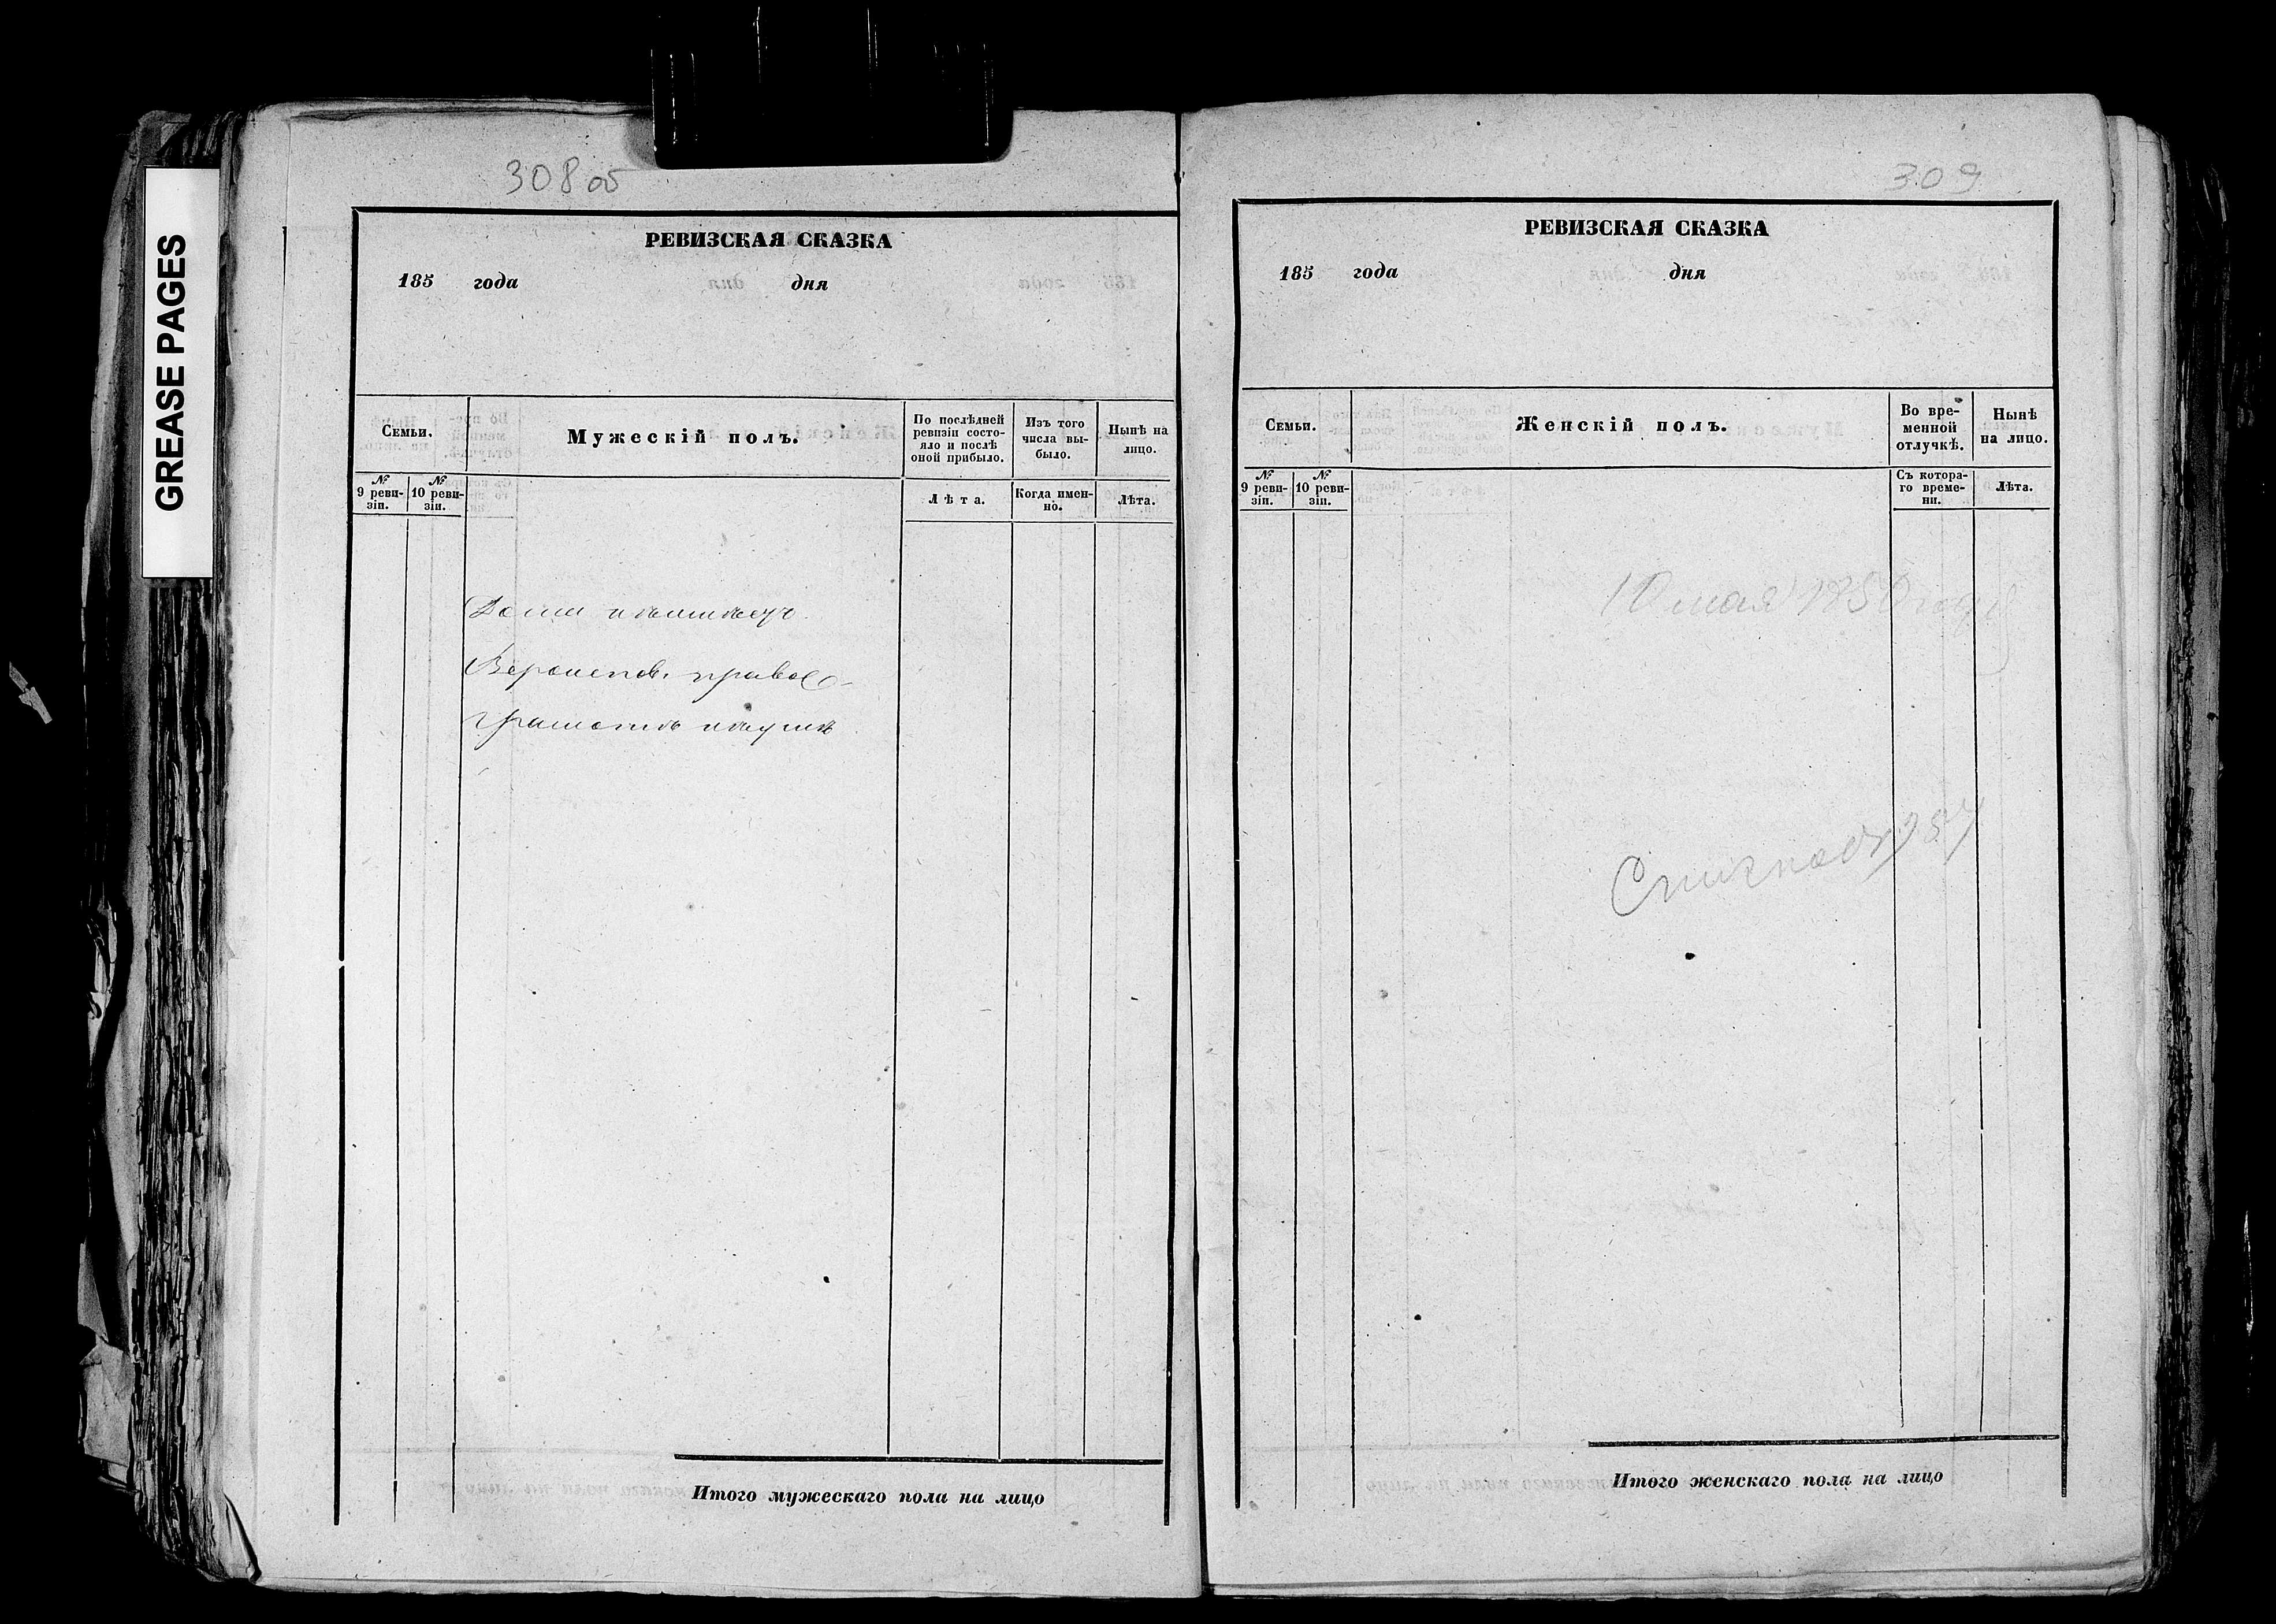 GREASE PAGES
308 об
РЕВИЗСКАЯ СКАЗКА
185 года дня
Семьи.
Мужескій полъ.
По послѣдней ревизіи состояло и послѣ оной прибыло.
Изъ того числа выбыло.
Нынѣ на лицо.
№ 9 ревизіи.
№ 10 ревизіи.
Лѣта.
Когда именно.
Лѣта.
Вероиспов. правос
грамотѣ
Итого мужескаго пола на лицо
309
РЕВИЗСКАЯ СКАЗКА
185 года дня
Семьи.
Женскій полъ.
Во временной отлучкѣ.
Нынѣ на лицо.
№ 9 ревизіи.
№ 10 ревизіи.
Съ котораго времени.
Лѣта.
10 мая 1850 года
Итого женскаго пола на лицо